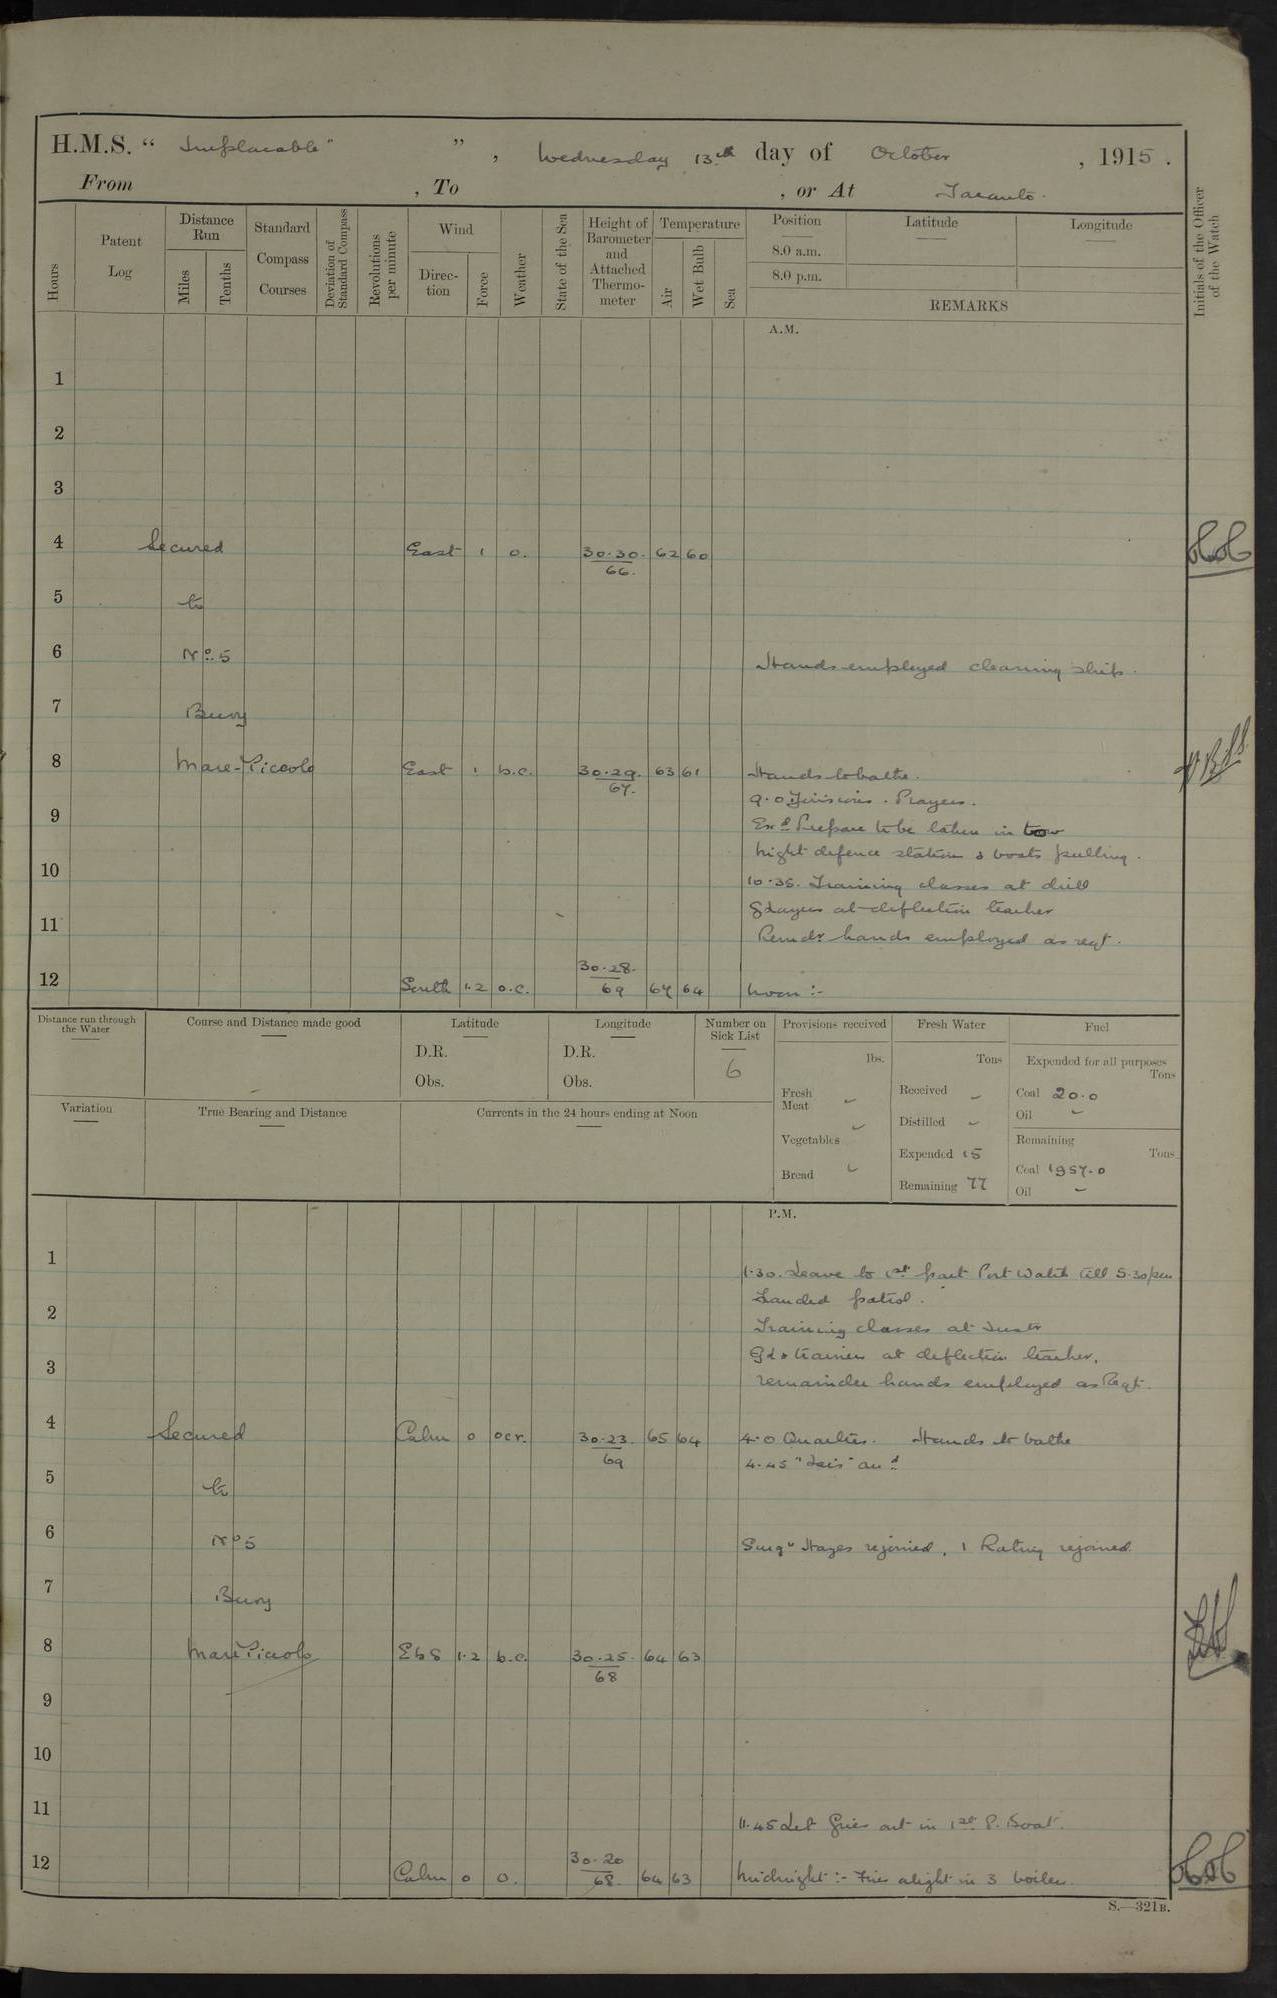 H.M.S. “ Implacable" ” , Wednesday 13th day of October , 1915 .
From , To , or At Taranto.
Hours
Patent Log
Distance Run
Miles
Tenths
Standard Compass Courses
Deviation of Standard Compass
Revolutions per minute
Wind
Direction
Force
Weather
State of the Sea
Height of Barometer and Attached Thermometer
Temperature
Air
Wet Bulb
Sea
Position
8.0 a.m.
8.0 p.m.
Latitude
Longitude
REMARKS
Initials of the Officer of the Watch
A.M.
1
2
3
4 Secured East 1 o. 30.30. 62 60
66.
5 to
6 No. 5 Hands employed cleaning ship.
7 Buoy
8 Mare-Piccolo East 1 b.c. 30.29. 63 61 Hands to bathe.
67.
9.0 Divisions. Prayers.
9
Exd Prepare to be taken in tow
night defence stations & boats pulling.
10
10.35. Training classes at drill
Glayers at deflection teacher
11
Remdr hands employed as reqt.
30.28.
12 South 1.2 o.c. 69 67 64 Noon :-
Distance run through the Water
Course and Distance made good
Latitude
D.R.
Obs.
Longitude
D.R.
Obs.
Number on Sick List
6
Provisions received
lbs.
Fresh Meat -
Vegetables -
Bread -
Fresh Water
Tons
Received -
Distilled -
Expended 15
Remaining 77
Fuel
Expended for all purposes
Tons
Coal 20.0
Oil -
Remaining
Tons
Coal 1957.0
Oil -
Variation
True Bearing and Distance
Currents in the 24 hours ending at Noon
P.M.
1
1.30. Leave to 1st part Port Watch till 5.30pm
Landed patrol.
2
Training classes at Instr
3
Gl & trainers at deflection teacher,
remainder hands employed as Reqt.
4 Secured Calm 0 ocr. 30.23. 65 64 4.0 Quarters. Hands to bathe
69
4.45 " arrd
5 to
6 No 5 Surgn Hayes rejoined, 1 Rating rejoined.
7 Buoy
8 Mare Piccolo EbS 1.2 b.c. 30.25. 64 63
68
9
10
11
11.45 Let fires out in 1st P. Boat.
30.20
12 Calm 0 o. 68. 64 63 Midnight :- Fires alight in 3 boilers.
S.—321B.